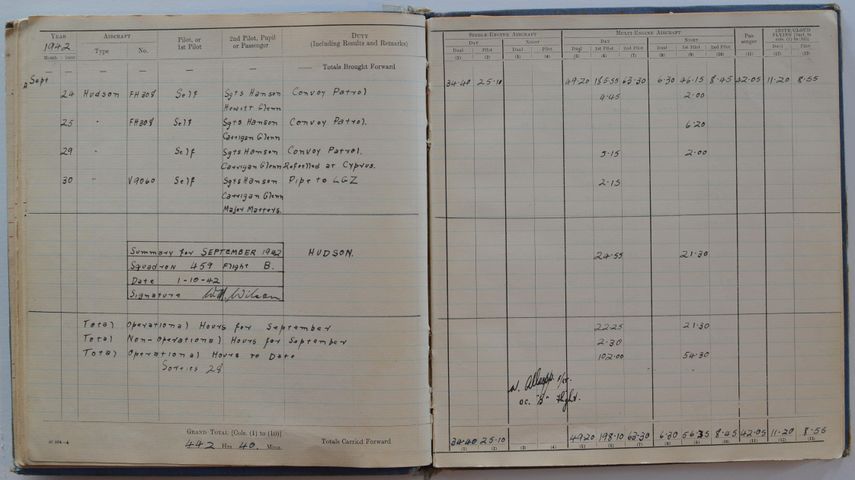 YEAR AIRCRAFT Pilot, or 1st Pilot 2nd Pilot, Pupil or Passenger DUTY (Including Results and Remarks)
1942 Type No.
MONTH DATE
— — — — — — Totals Brought Forward
Sept
24 Hudson FH308 Self Sgts Hanson Convoy Patrol
Hewitt Glenn
25 " FH308 Self Sgts Hanson Convoy Patrol.
Carrigan Glenn
29 Self Sgts Hanson Convoy Patrol.
Carrigan Glenn Refuelled at Cyprus.
30 " V9060 Self Sgts Hanson Pipe to LGZ
Carrigan Glenn
Major Matters.
Summary for SEPTEMBER 1942 HUDSON.
Squadron 459 Flight B.
Date 1-10-42
Signature Wilson
Total Operational Hours for September
Total Non-Operational Hours for September
Total Operational Hours to Date
Sorties 28
GRAND TOTAL [Cols. (1) to (10)]
442 Hrs. 40. Mins. Totals Carried Forward
SINGLE-ENGINE AIRCRAFT MULTI-ENGINE AIRCRAFT PASSENGER
DAY NIGHT DAY NIGHT
Dual Pilot Dual Pilot Dual 1st Pilot 2nd Pilot Dual 1st Pilot 2nd Pilot Dual Pilot
(1) (2) (3) (4) (5) (6) (7) (8) (9) (10) (11) (12) (13)
34.40 25.10 49.20 185.55 63.30 6.30 46.15 8.45 42.05 11.20 8.55
4.45 2.00
6.20
5.15 2.00
2.15
24.55 21.30
22.25 21.30
2.30
102.00 54.30
O.C. "B" Flight.
34.40 25.10 49.20 198.10 63.30 6.30 56.35 8.45 42.05 11.20 8.55
(1) (2) (3) (4) (5) (6) (7) (8) (9) (10) (11) (12) (13)